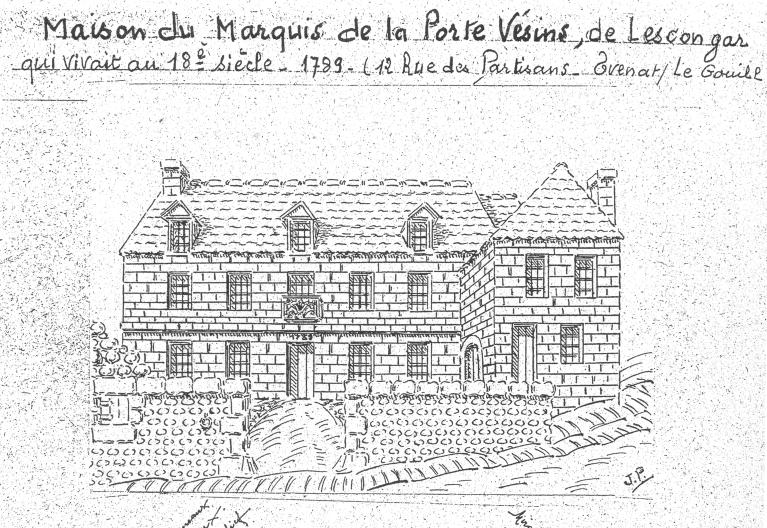 Maison du Marquis de la Porte Vésins, de Lescongar
qui vivait au 18è siècle - 1789 - (12 Rue des Partisans - Evenat/ Le Gouill
1789
J.P.